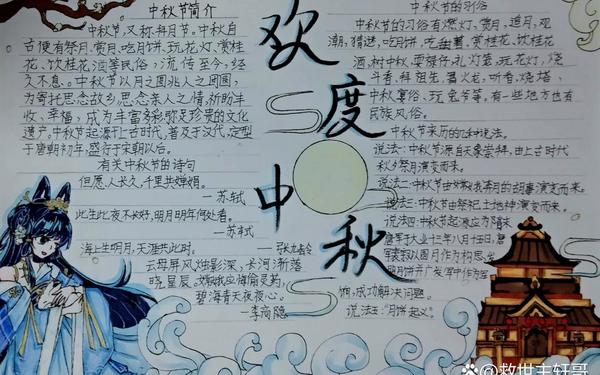 中秋节简介
中秋节,又称拜月节。中秋自
古便有祭月、赏月、吃月饼、玩花灯、赏桂
花、饮桂花酒等民俗,流传至今,经
久不息。中秋节以月之圆兆人之团圆,
为寄托思念故乡,思念亲人之情,祈盼丰
收、幸福,成为丰富多彩弥足珍贵的文化
遗产。中秋节起源于上古时代,普及于汉代,定型
于唐朝初年,盛行于宋朝以后。
有关中秋节的诗句
但愿人长久,千里共婵娟。
—苏轼
此生此夜不长好,明月明年何处看。
—苏轼
海上生明月,天涯共此时。
—张九龄
云母屏风烛影深,长河渐落
晓星辰。嫦娥应悔偷灵药,
碧海青天夜夜心。
—李商隐
欢
度
中
秋
中秋节的习俗
中秋节的习俗有燃灯、赏月、追月、观
潮、猜谜、吃月饼、赏桂花、饮桂花
酒、树中秋、耍禄仔、扎灯笼、玩花灯、烧
斗香、拜祖先、舂火起、听香、烧塔、
中秋宴俗、玩兔节等。有一些地方也有
民族风俗。
中秋节来历的几种说法。
说法一:中秋节源自天象崇拜,由上古时代
秋夕祭月演变而来。
说法二:中秋节由嫦娥奔月的故事演变而来。
说法三:中秋节由祭祀土地神演变而来。
说法四:中秋节起源应为隋末
唐军于大业十三年八月十五日,唐
军裴寂以圆月作为构思,
月饼并广发军中作为军
饷,成功解决问题。
说法五:“月饼起义”。
@救世主轩哥